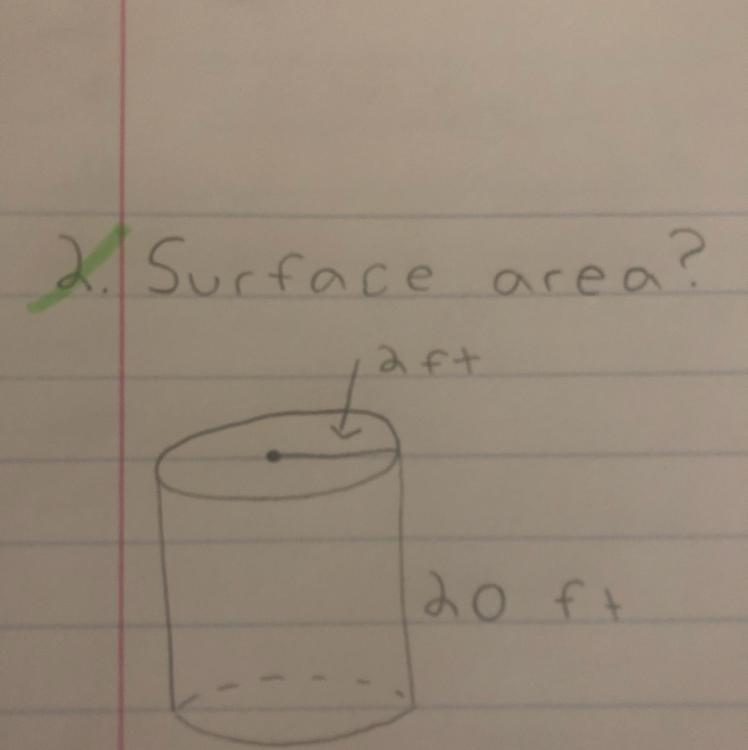 2. Surface area?
2 ft
20 ft